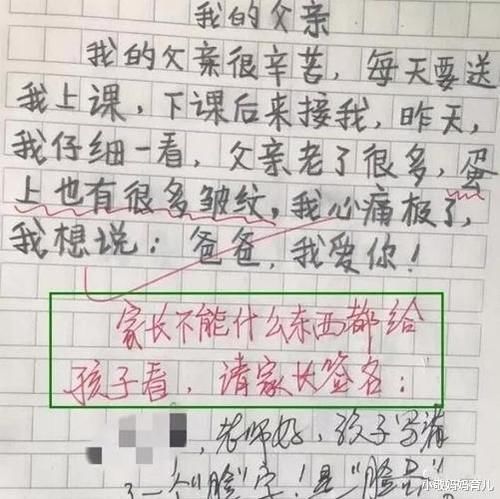 我的父亲
我的父亲很辛苦，每天要送
我上课，下课后来接我，昨天，
我仔细一看，父亲老了很多，蛋
上也有很多皱纹，我心痛极了，
我想说：爸爸，我爱你！
家长不能什么东西都给
孩子看，请家长签名：
，老师好，孩子写满
了一个"脸"字！是"脸
小敏妈妈育儿